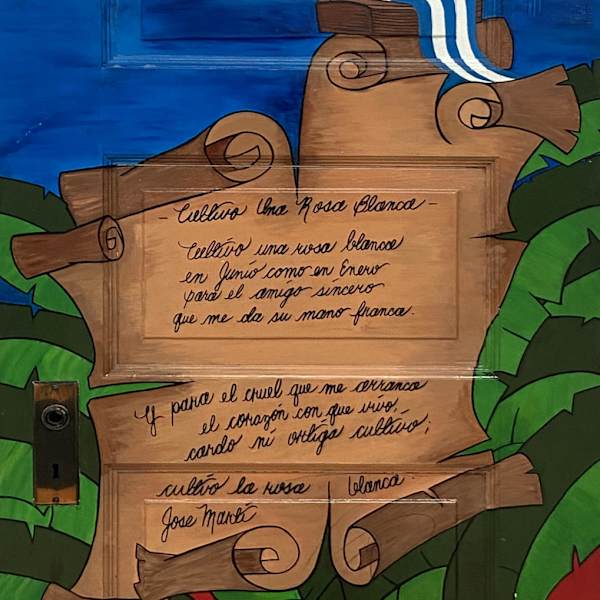 - Cultivo Una Rosa Blanca -
Cultivo una rosa blanca
en Junio como en Enero
para el amigo sincero
que me da su mano franca.
Y para el cruel que me arranca
el corazón con que vivo,
cardo ni ortiga cultivo;
cultivo la rosa blanca.
Jose Martí